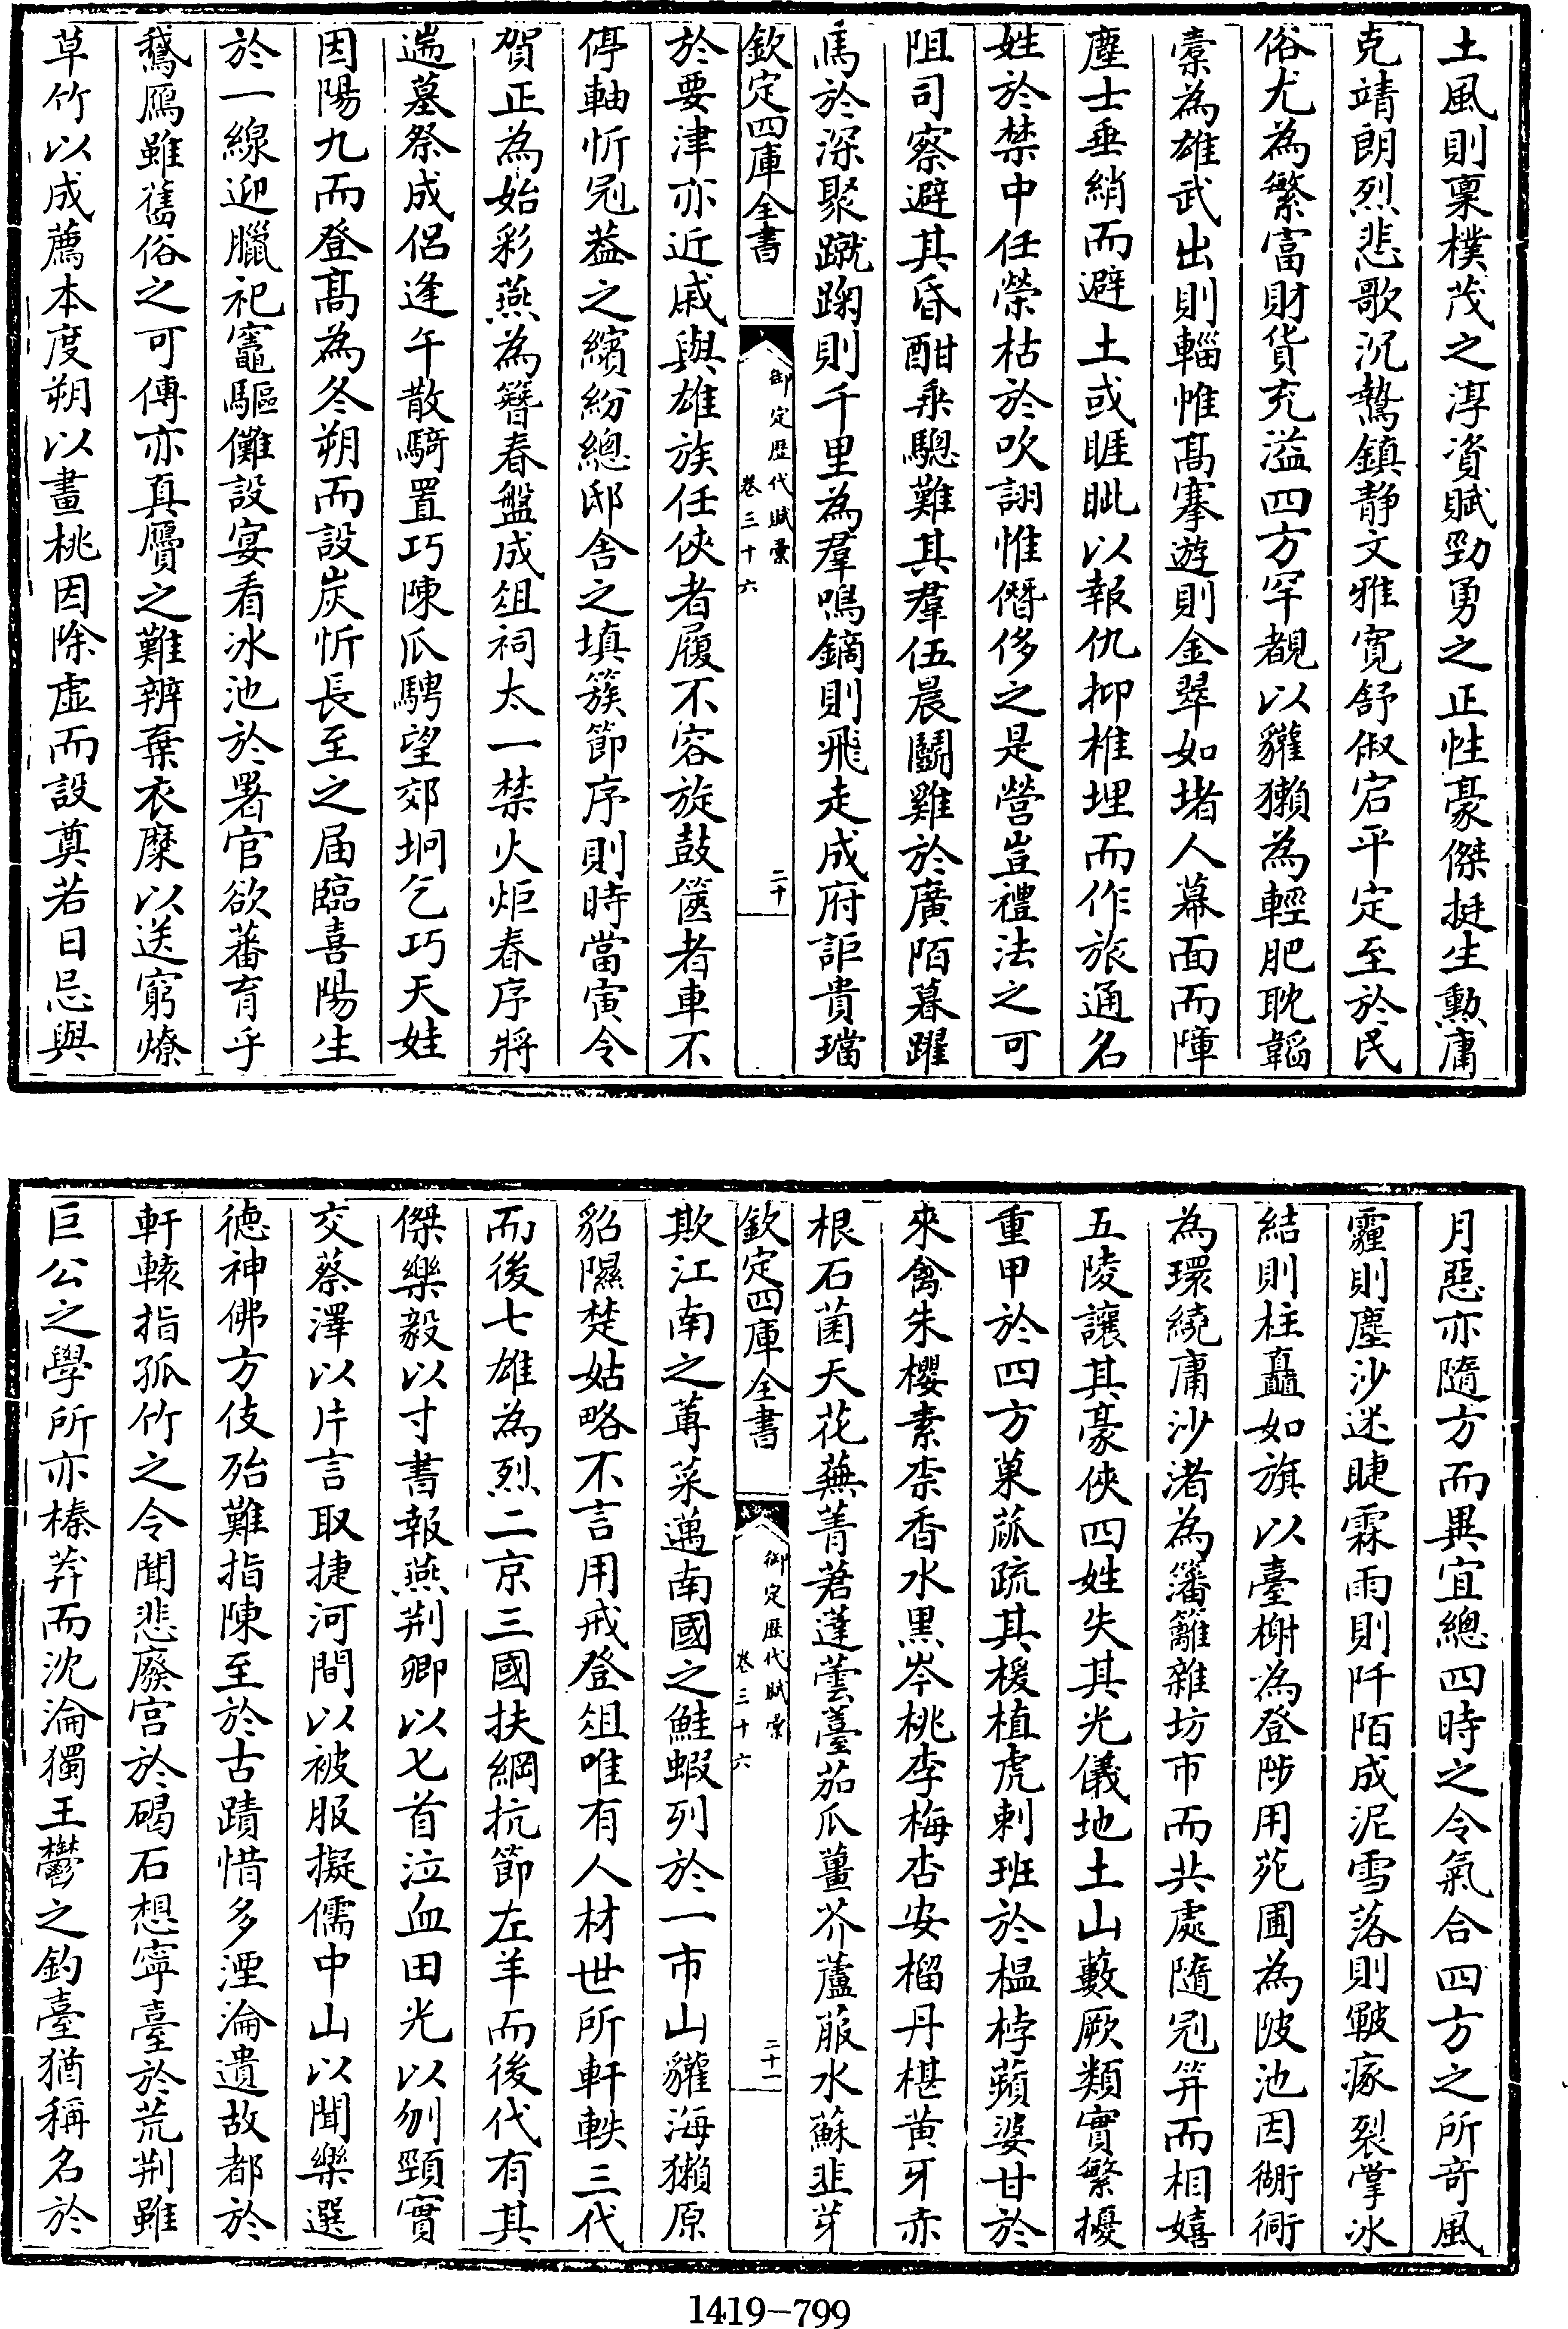 土風則稟樸茂之淳資賦勁勇之正性豪傑挺生勲庸
克靖朗烈悲歌沉鷙鎮静文雅寛舒俶宕平定至於民
俗尤為繁富財貨充溢四方罕覩以貛獺為輕肥耽韜
櫜為雄武出則輜帷髙搴遊則金翠如堵人幕面而障
塵士垂綃而避土或睚眦以報仇抑椎埋而作旅通名
姓於禁中任榮枯於吹詡惟僭侈之是營豈禮法之可
阻司察避其昏酣乗驄難其羣伍晨鬭雞於廣陌暮躍
馬於深聚蹴踘則千里為羣鳴鏑則飛走成府詎貴璫
欽定四庫全書
御定歴代賦彙
卷三十六
二十
於要津亦近戚與雄族任俠者履不容旋鼓篋者車不
停軸忻冠葢之繽紛總邸舍之填簇節序則時當寅令
賀正為始彩燕為簪春盤成俎祠太一禁火炬春序將
遄墓祭成侣逢午散騎置巧陳瓜騁望郊坰乞巧天娃
因陽九而登髙為冬朔而設炭忻長至之届臨喜陽生
於一線迎臘祀竈驅儺設宴看冰池於署官欲蕃育乎
鵞鴈雖舊俗之可傳亦真贋之難辨棄衣糜以送窮燎
草竹以成薦本度朔以畫桃因除虛而設奠若日忌與
月惡亦隨方而異宜總四時之令氣合四方之所竒風
霾則塵沙迷睫霖雨則阡陌成泥雪落則皸瘃裂掌冰
結則柱矗如旗以臺榭為登陟用苑圃為陂池因衚衕
為環繞庸沙渚為籓籬雜坊市而共處隨冠笄而相嬉
五陵讓其豪俠四姓失其光儀地土山藪厥類實繁擾
重甲於四方菓蓏疏其椄植虎刺班於榅桲蘋婆甘於
來禽朱櫻素柰香水黒岑桃李梅杏安榴丹椹黄牙赤
根石菌天花蕪菁莙蓬蕓薹茄瓜薑芥蘆菔水蘇韭芽
欽定四庫全書
御定歴代賦彙
卷三十六
二十一
欺江南之蓴菜邁南國之鮭蝦列於一市山貛海獺原
貂隰㹨姑略不言用戒登俎唯有人材世所軒軼三代
而後七雄為烈二京三國扶綱抗節左羊而後代有其
傑樂毅以寸書報燕荆卿以匕首泣血田光以刎頸實
交蔡澤以片言取捷河間以被服擬儒中山以聞樂選
徳神佛方伎殆難指陳至於古蹟惜多湮淪遺故都於
軒轅指孤竹之令聞悲廢宫於碣石想寧臺於荒荆雖
巨公之學所亦榛莽而沈淪獨王鬱之釣臺猶稱名於
1419-799